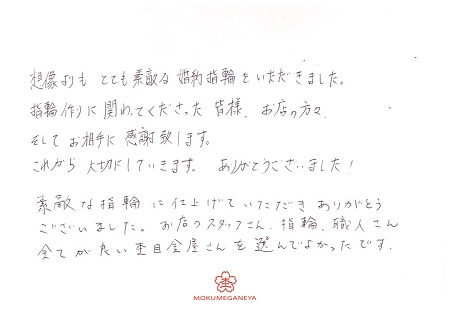 想像よりも とても素敵な婚約指輪をいただきました。
指輪作りに関わってくださった皆様、お店の方々、
そしてお相手に感謝致します。
これから大切にしていきます。ありがとうございました!
素敵な指輪に仕上げていただきありがとう
ございました。お店のスタッフさん、指輪、職人さん
全てが良い杢目金屋さんを選んでよかったです。
杢
MOKUMEGANEYA